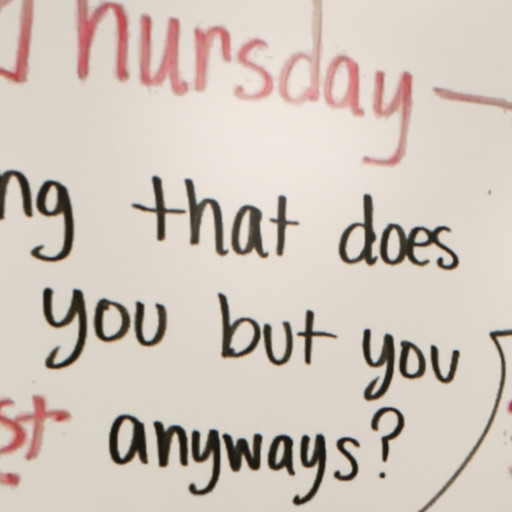 Thursday
ng that does
you but you
st anyways?